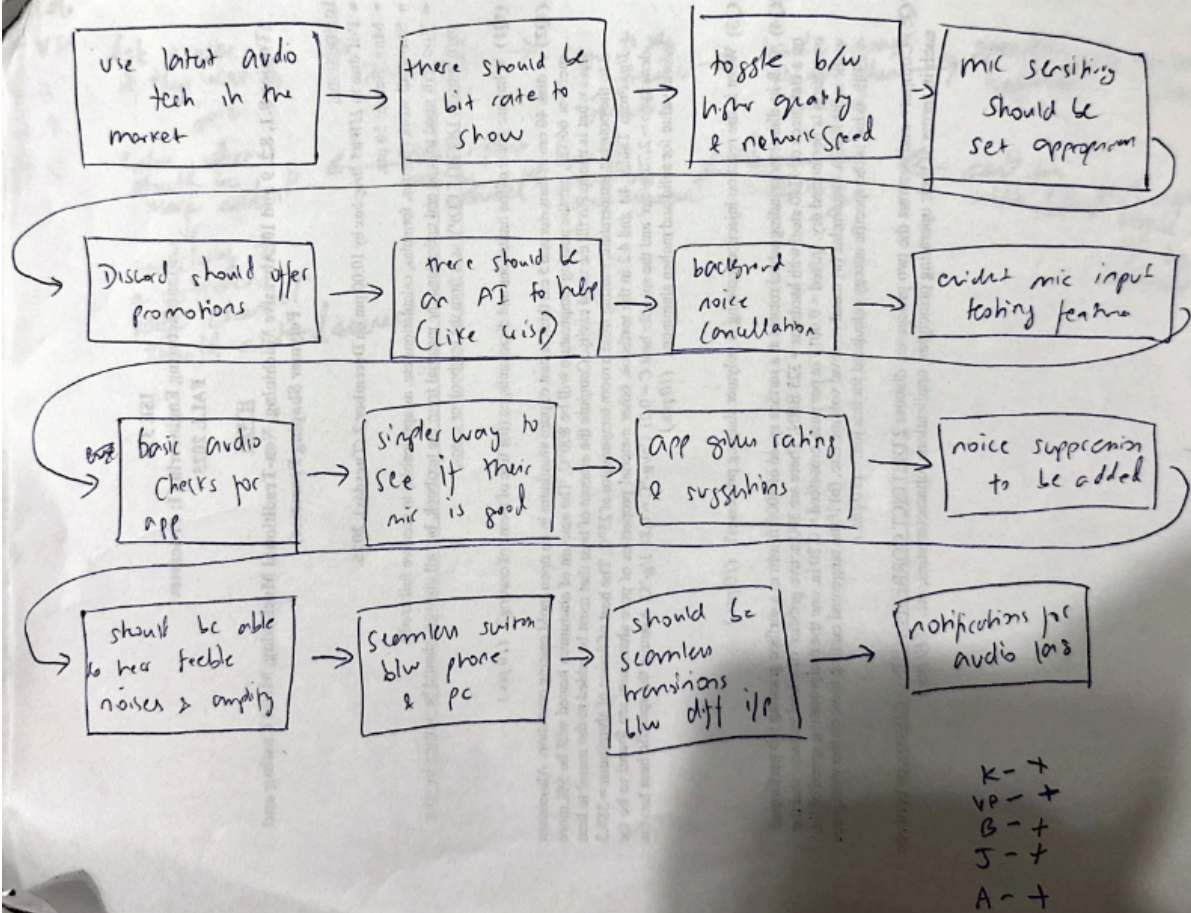 use latest audio
tech in the
market
there should be
bit rate to
show
toggle b/w
higher quality
& network speed
mic sensitivity
should be
set
Discord should offer
promotions
there should be
an AI to help
(like krisp)
background
noise
cancellation
mic input
testing feature
basic audio
checks for
app
simpler way to
see if their
mic is good
app gives rating
& suggestions
noise suppression
to be added
should be able
to hear feeble
noises & amplify
seamless switch
b/w phone
& pc
should be
seamless
transitions
b/w diff i/p
notifications for
audio lag
K - +
VP - +
B - +
J - +
A - +